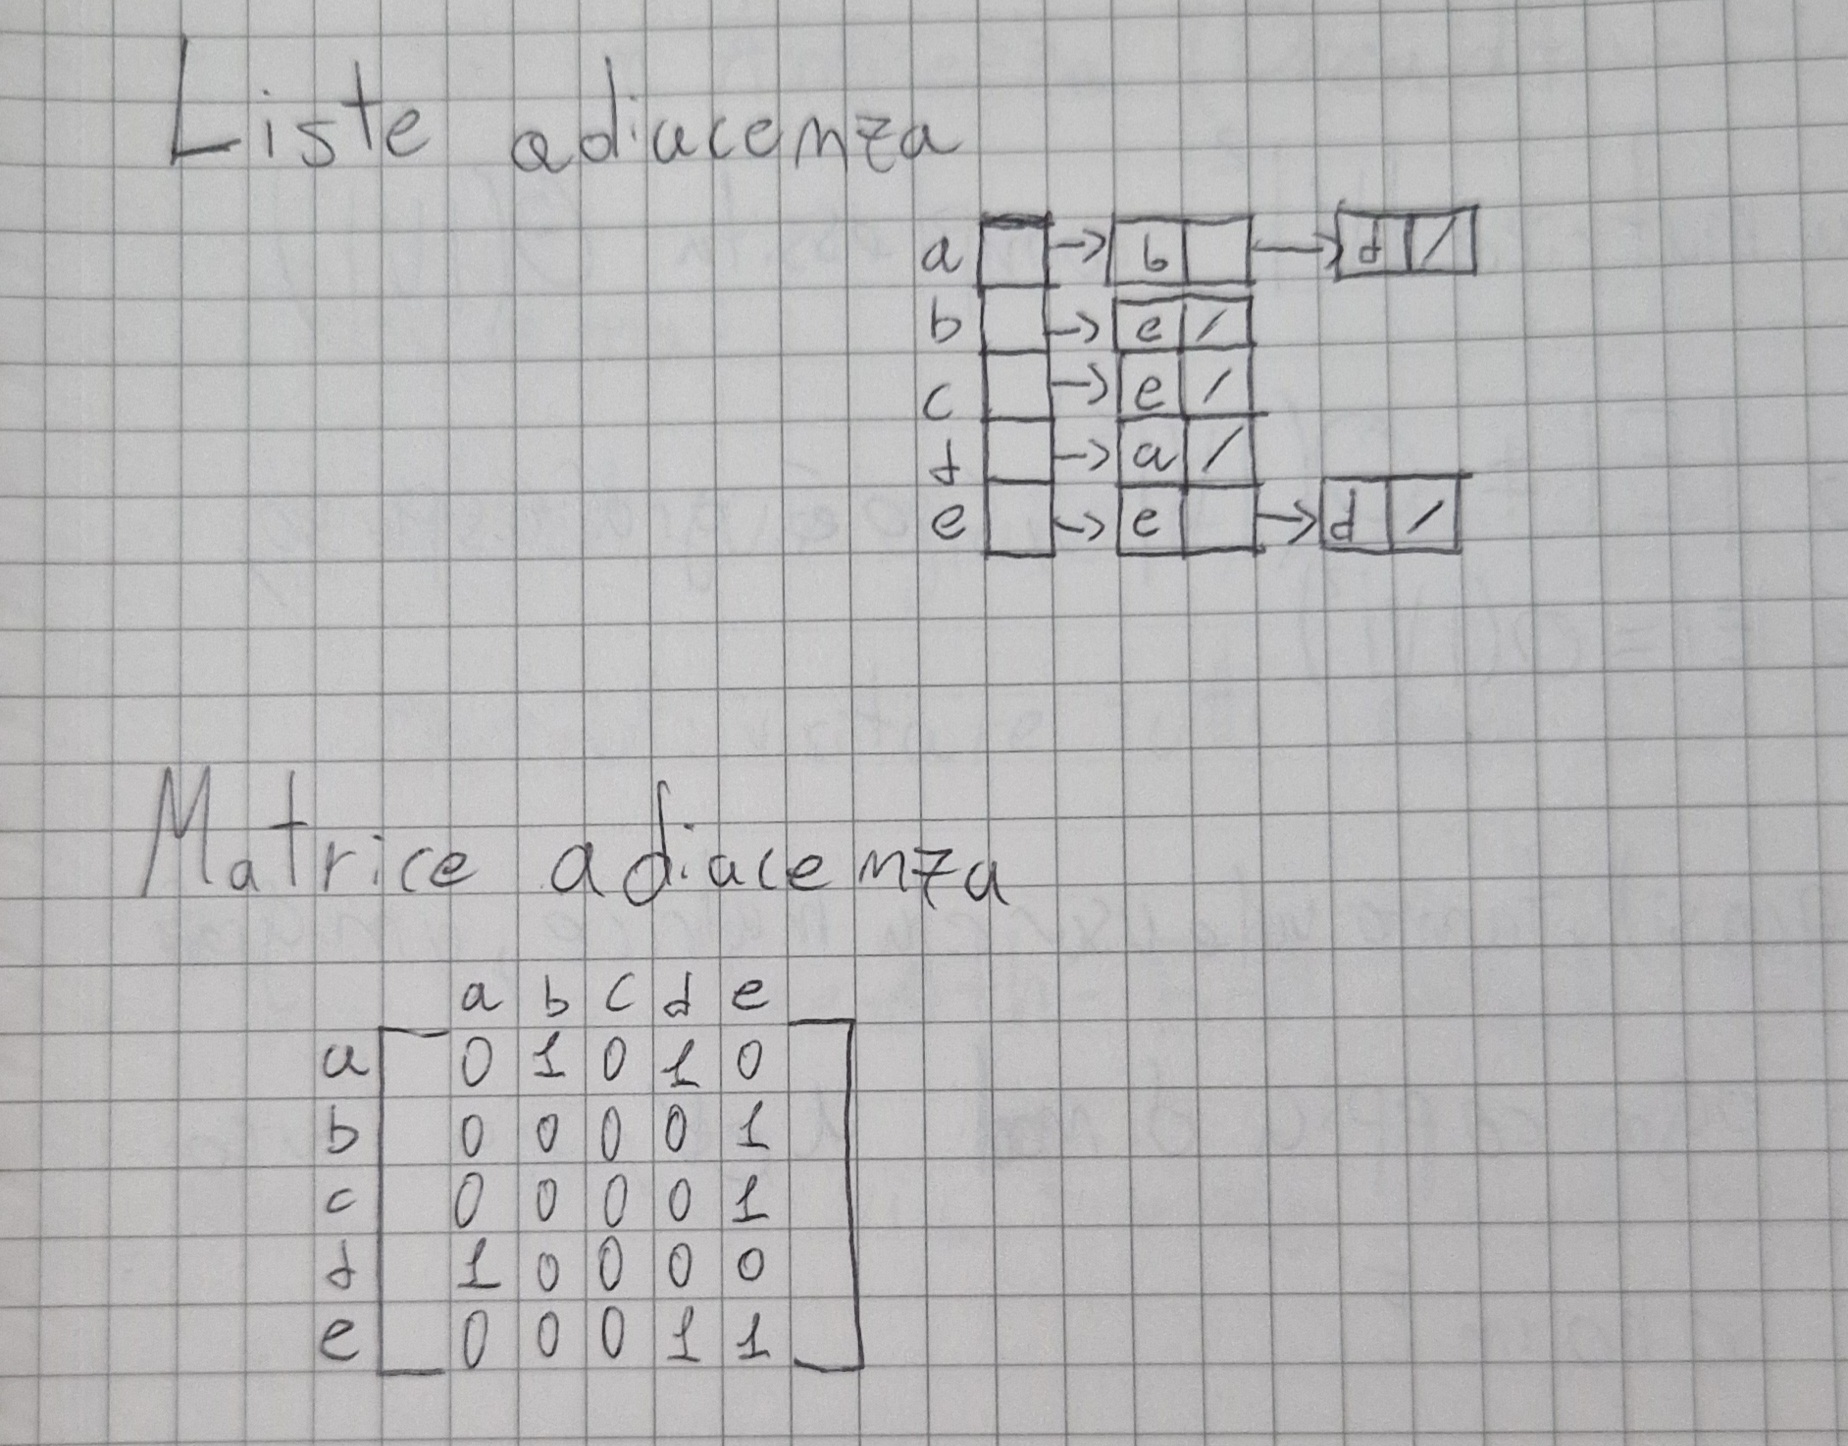 Liste adiacenza
a → b → d /
b → e /
c → e /
d → a /
e → e → d /
Matrice adiacenza
a b c d e
a 0 1 0 1 0
b 0 0 0 0 1
c 0 0 0 0 1
d 1 0 0 0 0
e 0 0 0 1 1